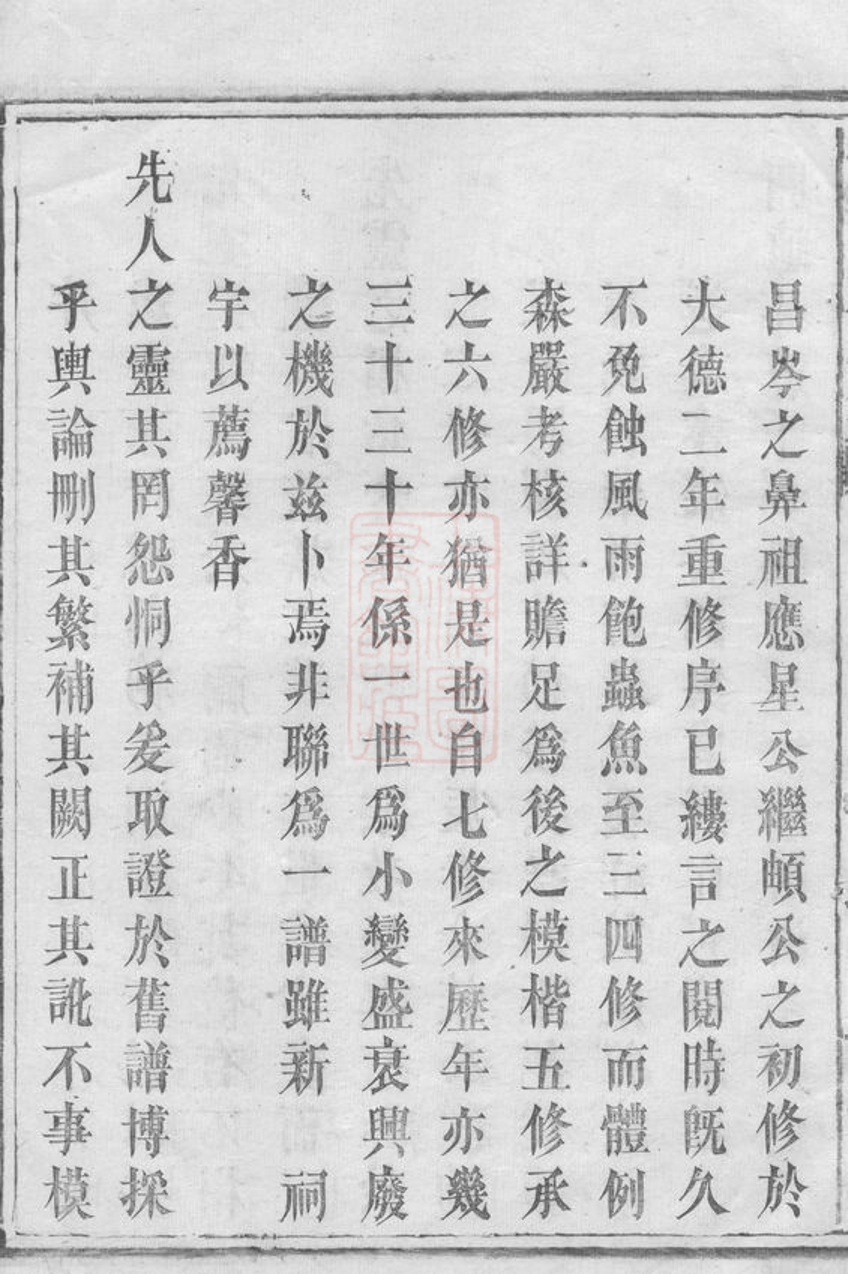 昌岑之鼻祖應星公繼㠷公之初修於
大德二年重修序已縷言之閱時旣久
不免蝕風雨飽蟲魚至三四修而體例
森嚴考核詳贍足爲後之模楷五修承
之六修亦猶是也自七修來歷年亦幾
三十三十年係一世爲小變盛衰興廢
之機於兹卜焉非聯爲一譜雖新　祠
宇以薦馨香
先人之靈其罔怨恫乎爰取證於舊譜博採
乎輿論刪其繁補其闕正其訛不事模